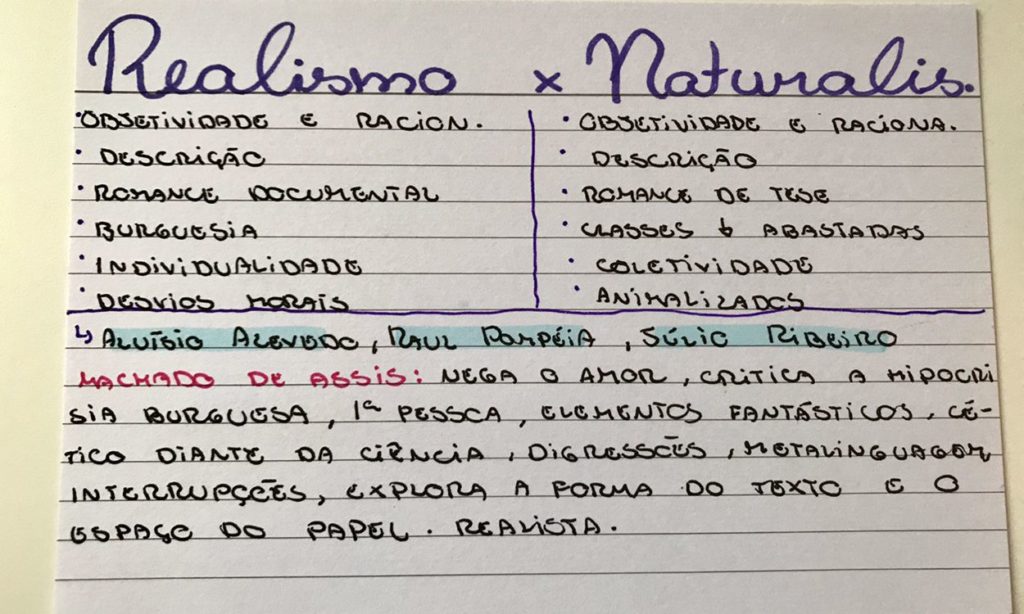 Realismo x Naturalis.
• OBJETIVIDADE E RACION. • OBJETIVIDADE E RACIONA.
• DESCRIÇÃO • DESCRIÇÃO
• ROMANCE DOCUMENTAL • ROMANCE DE TESE
• BURGUESIA • CLASSES ↓ ABASTADAS
• INDIVIDUALIDADE • COLETIVIDADE
• DESVIOS MORAIS • ANIMALIZADOS
↳ ALUÍSIO AZEVEDO, RAUL POMPÉIA, JÚLIO RIBEIRO
MACHADO DE ASSIS: NEGA O AMOR, CRITICA A HIPOCRI
SIA BURGUESA, 1ª PESSOA, ELEMENTOS FANTÁSTICOS, CÉ-
TICO DIANTE DA CIÊNCIA, DIGRESSÕES, METALINGUAGEM
INTERRUPÇÕES, EXPLORA A FORMA DO TEXTO E O
ESPAÇO DO PAPEL. REALISTA.